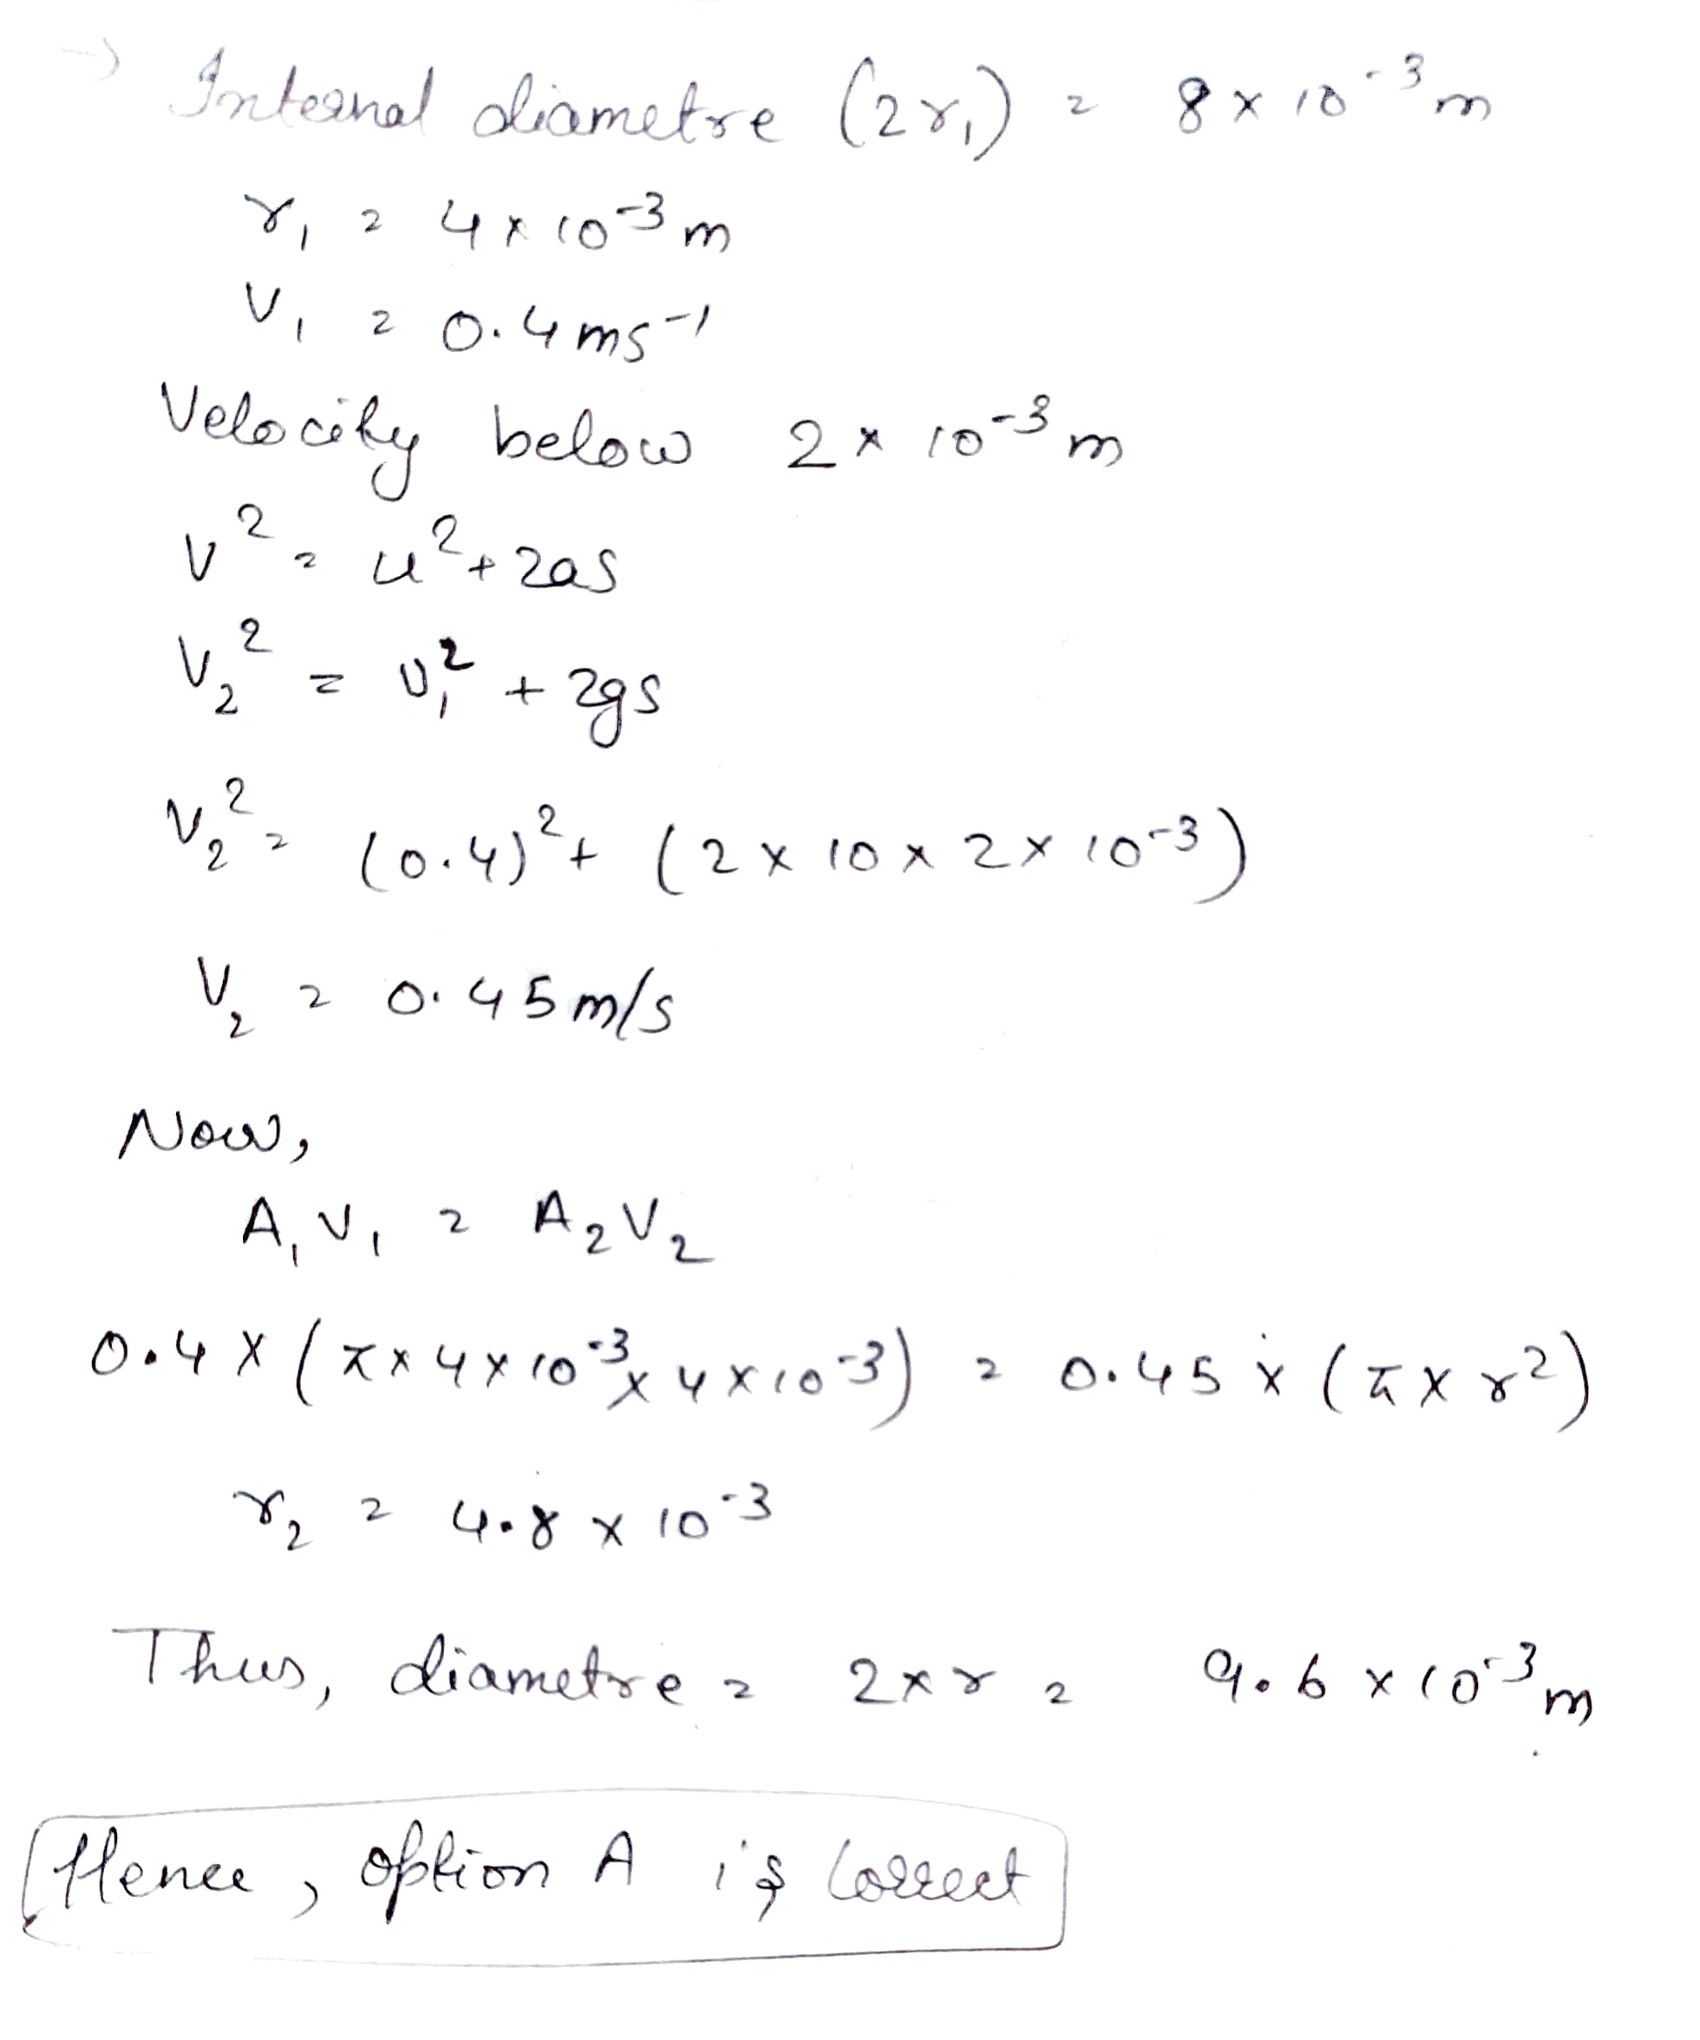 → Internal diametre (2r₁) = 8 × 10⁻³ m
r₁ = 4 × 10⁻³ m
V₁ = 0.4 ms⁻¹
Velocity below 2 × 10⁻³ m
v² = u² + 2as
V₂² = v₁² + 2gs
V₂² = (0.4)² + (2 × 10 × 2 × 10⁻³)
V₂ = 0.45 m/s
Now,
A₁V₁ = A₂V₂
0.4 × (π × 4 × 10⁻³ × 4 × 10⁻³) = 0.45 × (π × r²)
r₂ = 4.8 × 10⁻³
Thus, diametre = 2×r = 9.6 × 10⁻³ m
Hence, option A is correct